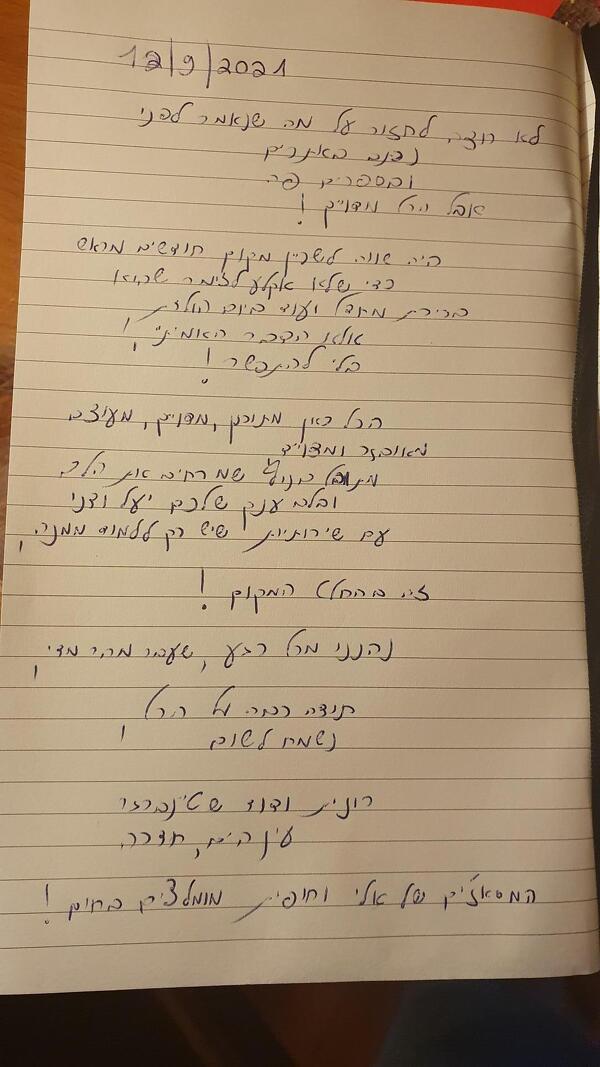 12/9/2021
לא רוצה לחזור על מה שנאמר לפני
נכתב באתרים
ובספרים פה
אבל הכל מדוייק!
היה שווה לשריין מקום חודשים מראש
כדי שלא אקלע לצימר שהוא
ברירת מחדל ועוד ביום הולדת
אלא הדבר האמיתי!
בלי להתפשר!
הכל כאן מתוכנן, מדוייק, מעוצב
מאובזר ומצוייד
מתובל בנוף שמרחיב את הלב
ובלב ענק שלכם יעל ודני
עם שירותיות שיש רק ללמוד ממנה,
זה בהחלט המקום!
נהננו מכל רגע, שעבר מהר מדי,
תודה רבה על הכל,
נשמח לשוב
רונית ודוד שטינברגר
עין הים, חדרה
המסאז'ים של אלי וחופית מומלצים בחום!